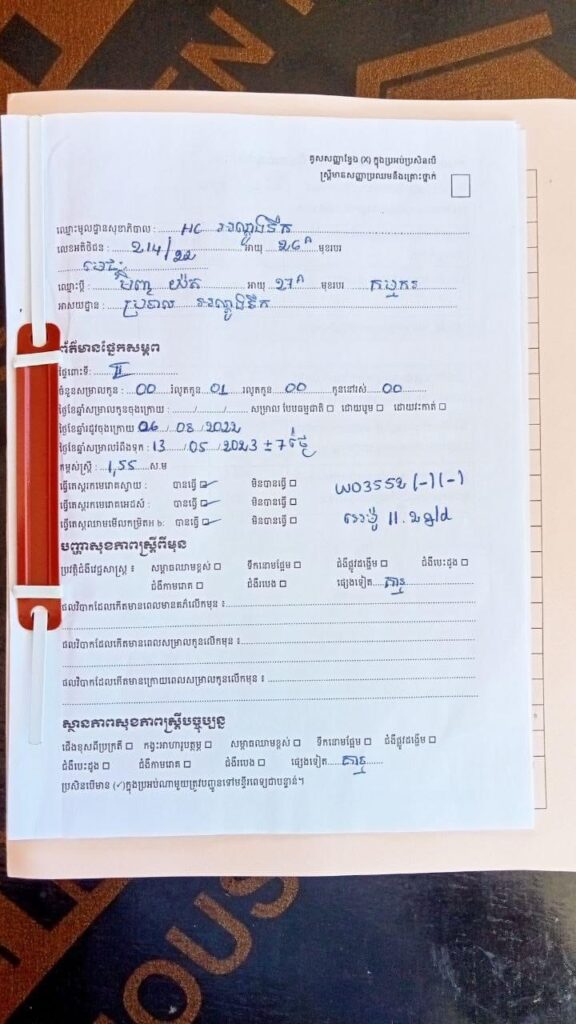 គូសសញ្ញាខ្វែង (X) ក្នុងប្រអប់ប្រសិនបើ
ស្ត្រីមានសញ្ញាប្រឈមនឹងគ្រោះថ្នាក់
ឈ្មោះមូលដ្ឋានសុខាភិបាល : HC អណ្តូងទឹក
លេខអតិថិជន : 214/22 អាយុ 26ឆ មុខរបរ
មេផ្ទះ
ឈ្មោះប្តី : អាយុ 27ឆ មុខរបរ កម្មករ
អាសយដ្ឋាន : អណ្តូងទឹក
ព័ត៌មានផ្នែកសម្ភព
ផ្ទៃពោះទី: II
ចំនួនសម្រាលកូន : 00 រំលូតកូន 01 រលូតកូន 00 កូននៅរស់ 00
ថ្ងៃខែឆ្នាំសម្រាលកូនចុងក្រោយ : / / សម្រាល បែបធម្មជាតិ ដោយបូម ដោយវះកាត់
ថ្ងៃខែឆ្នាំរដូវចុងក្រោយ 06 / 08 / 2022
ថ្ងៃខែឆ្នាំសម្រាលរំពឹងទុក : 13 / 05 / 2023 ± 7ថ្ងៃ
កម្ពស់ស្ត្រី : 1,55 ស.ម
ធ្វើតេស្តរកមេរោគស្វាយ : បានធ្វើ ✓ មិនបានធ្វើ W03552 (-) (-)
ធ្វើតេស្តរកមេរោគអេដស៍ : បានធ្វើ ✓ មិនបានធ្វើ
ធ្វើតេស្តឈាមមើលកម្រិតH b: បានធ្វើ ✓ មិនបានធ្វើ អេម៉ូ 11.2g/d
បញ្ហាសុខភាពស្ត្រីពីមុន
ប្រវត្តិជំងឺវេជ្ជសាស្ត្រ ៖ សម្ពាធឈាមខ្ពស់ ទឹកនោមផ្អែម ជំងឺផ្លូវដង្ហើម ជំងឺបេះដូង
ជំងឺកាមរោគ ជំងឺរបេង ផ្សេងទៀត គ្មាន
ផលវិបាកដែលកើតមានពេលមានគភ៌លើកមុន ៖
ផលវិបាកដែលកើតមានពេលសម្រាលកូនលើកមុន ៖
ផលវិបាកដែលកើតមានក្រោយពេលសម្រាលកូនលើកមុន ៖
ស្ថានភាពសុខភាពស្ត្រីបច្ចុប្បន្ន
ជើងខុសពីប្រក្រតី កង្វះអាហារូបត្ថម្ភ សម្ពាធឈាមខ្ពស់ ទឹកនោមផ្អែម ជំងឺផ្លូវដង្ហើម
ជំងឺបេះដូង ជំងឺកាមរោគ ជំងឺរបេង ផ្សេងទៀត គ្មាន
ប្រសិនបើមាន (✓)ក្នុងប្រអប់ណាមួយត្រូវបញ្ជូនទៅមន្ទីរពេទ្យជាបន្ទាន់។